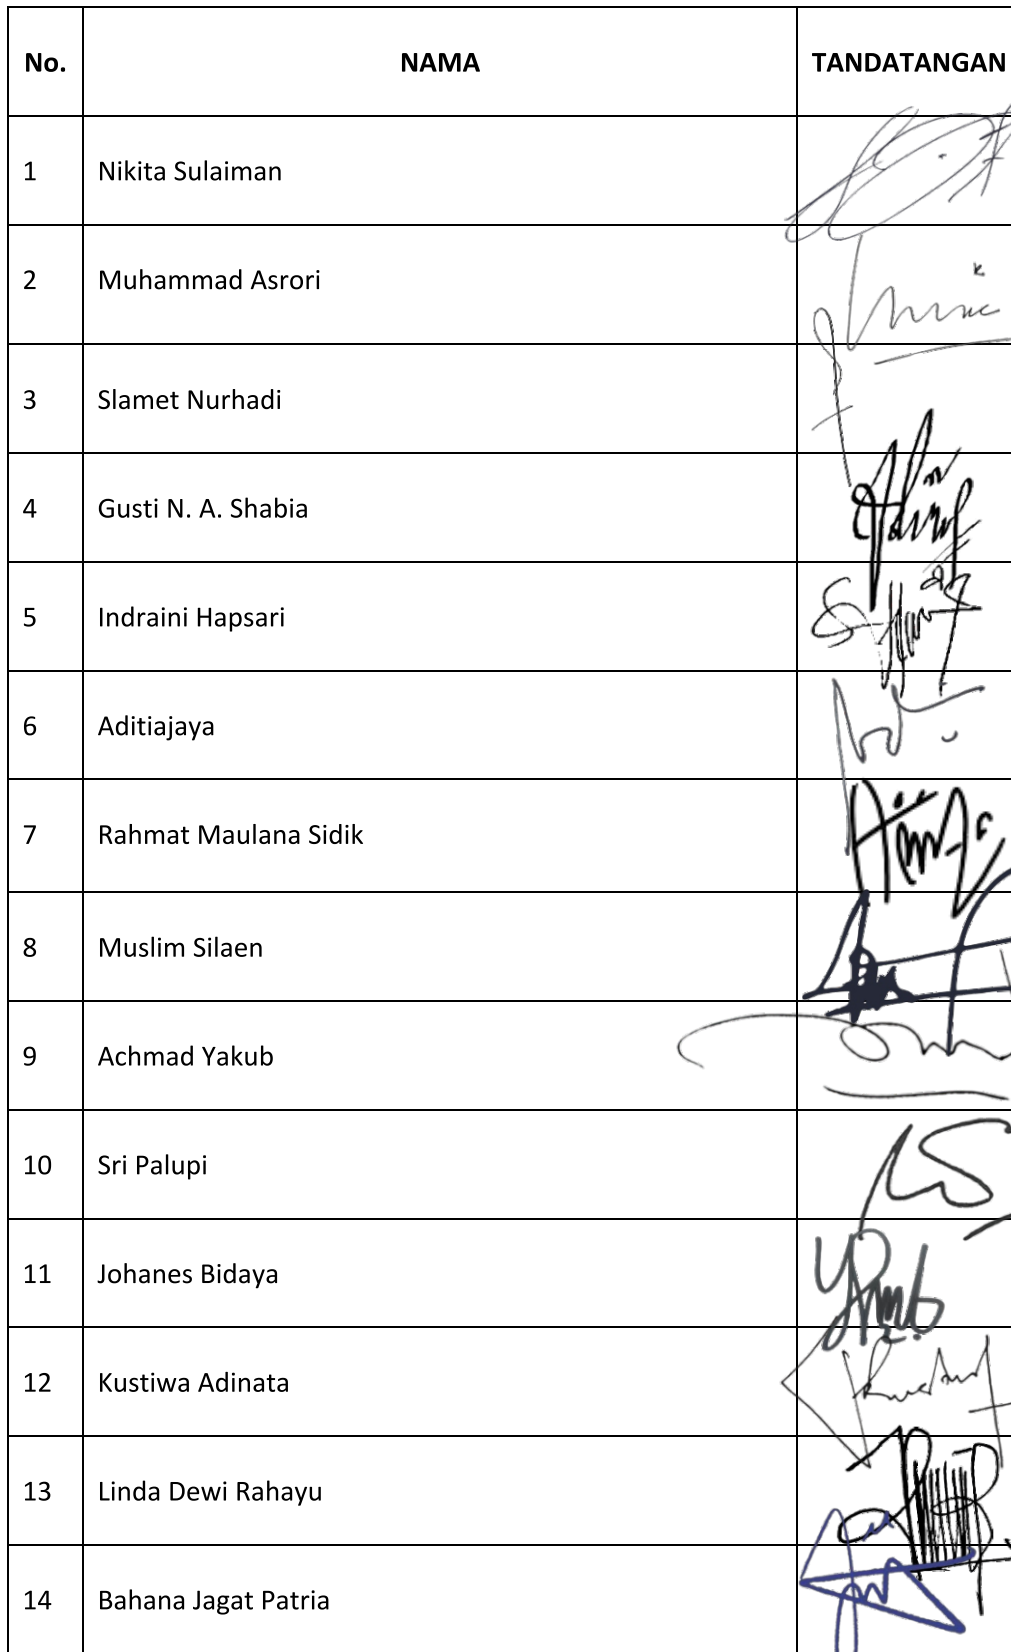 No. NAMA TANDATANGAN
1 Nikita Sulaiman
2 Muhammad Asrori
3 Slamet Nurhadi
4 Gusti N. A. Shabia
5 Indraini Hapsari
6 Aditiajaya
7 Rahmat Maulana Sidik
8 Muslim Silaen
9 Achmad Yakub
10 Sri Palupi
11 Johanes Bidaya
12 Kustiwa Adinata
13 Linda Dewi Rahayu
14 Bahana Jagat Patria